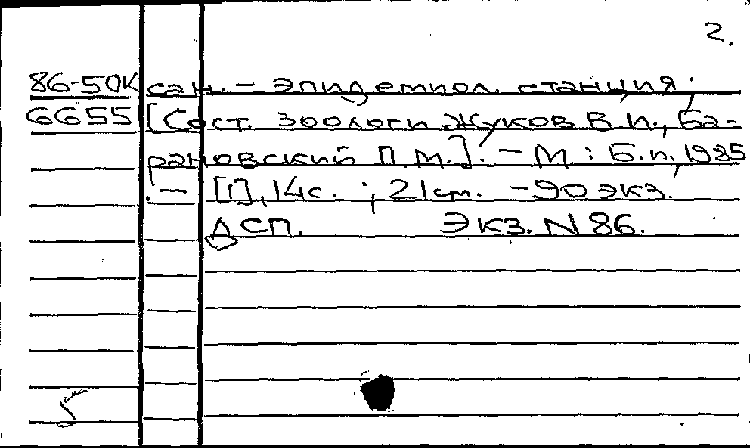 2.
86-50К сан. – эпидемиол. станция;
6655 [Сост. зоологи Жуков В.И., Ба-
рановский П.М.]. – М : Б.и., 1985
. – [1], 14с. ; 21см. – 90 экз.
ДСП. Экз. N 86.
5